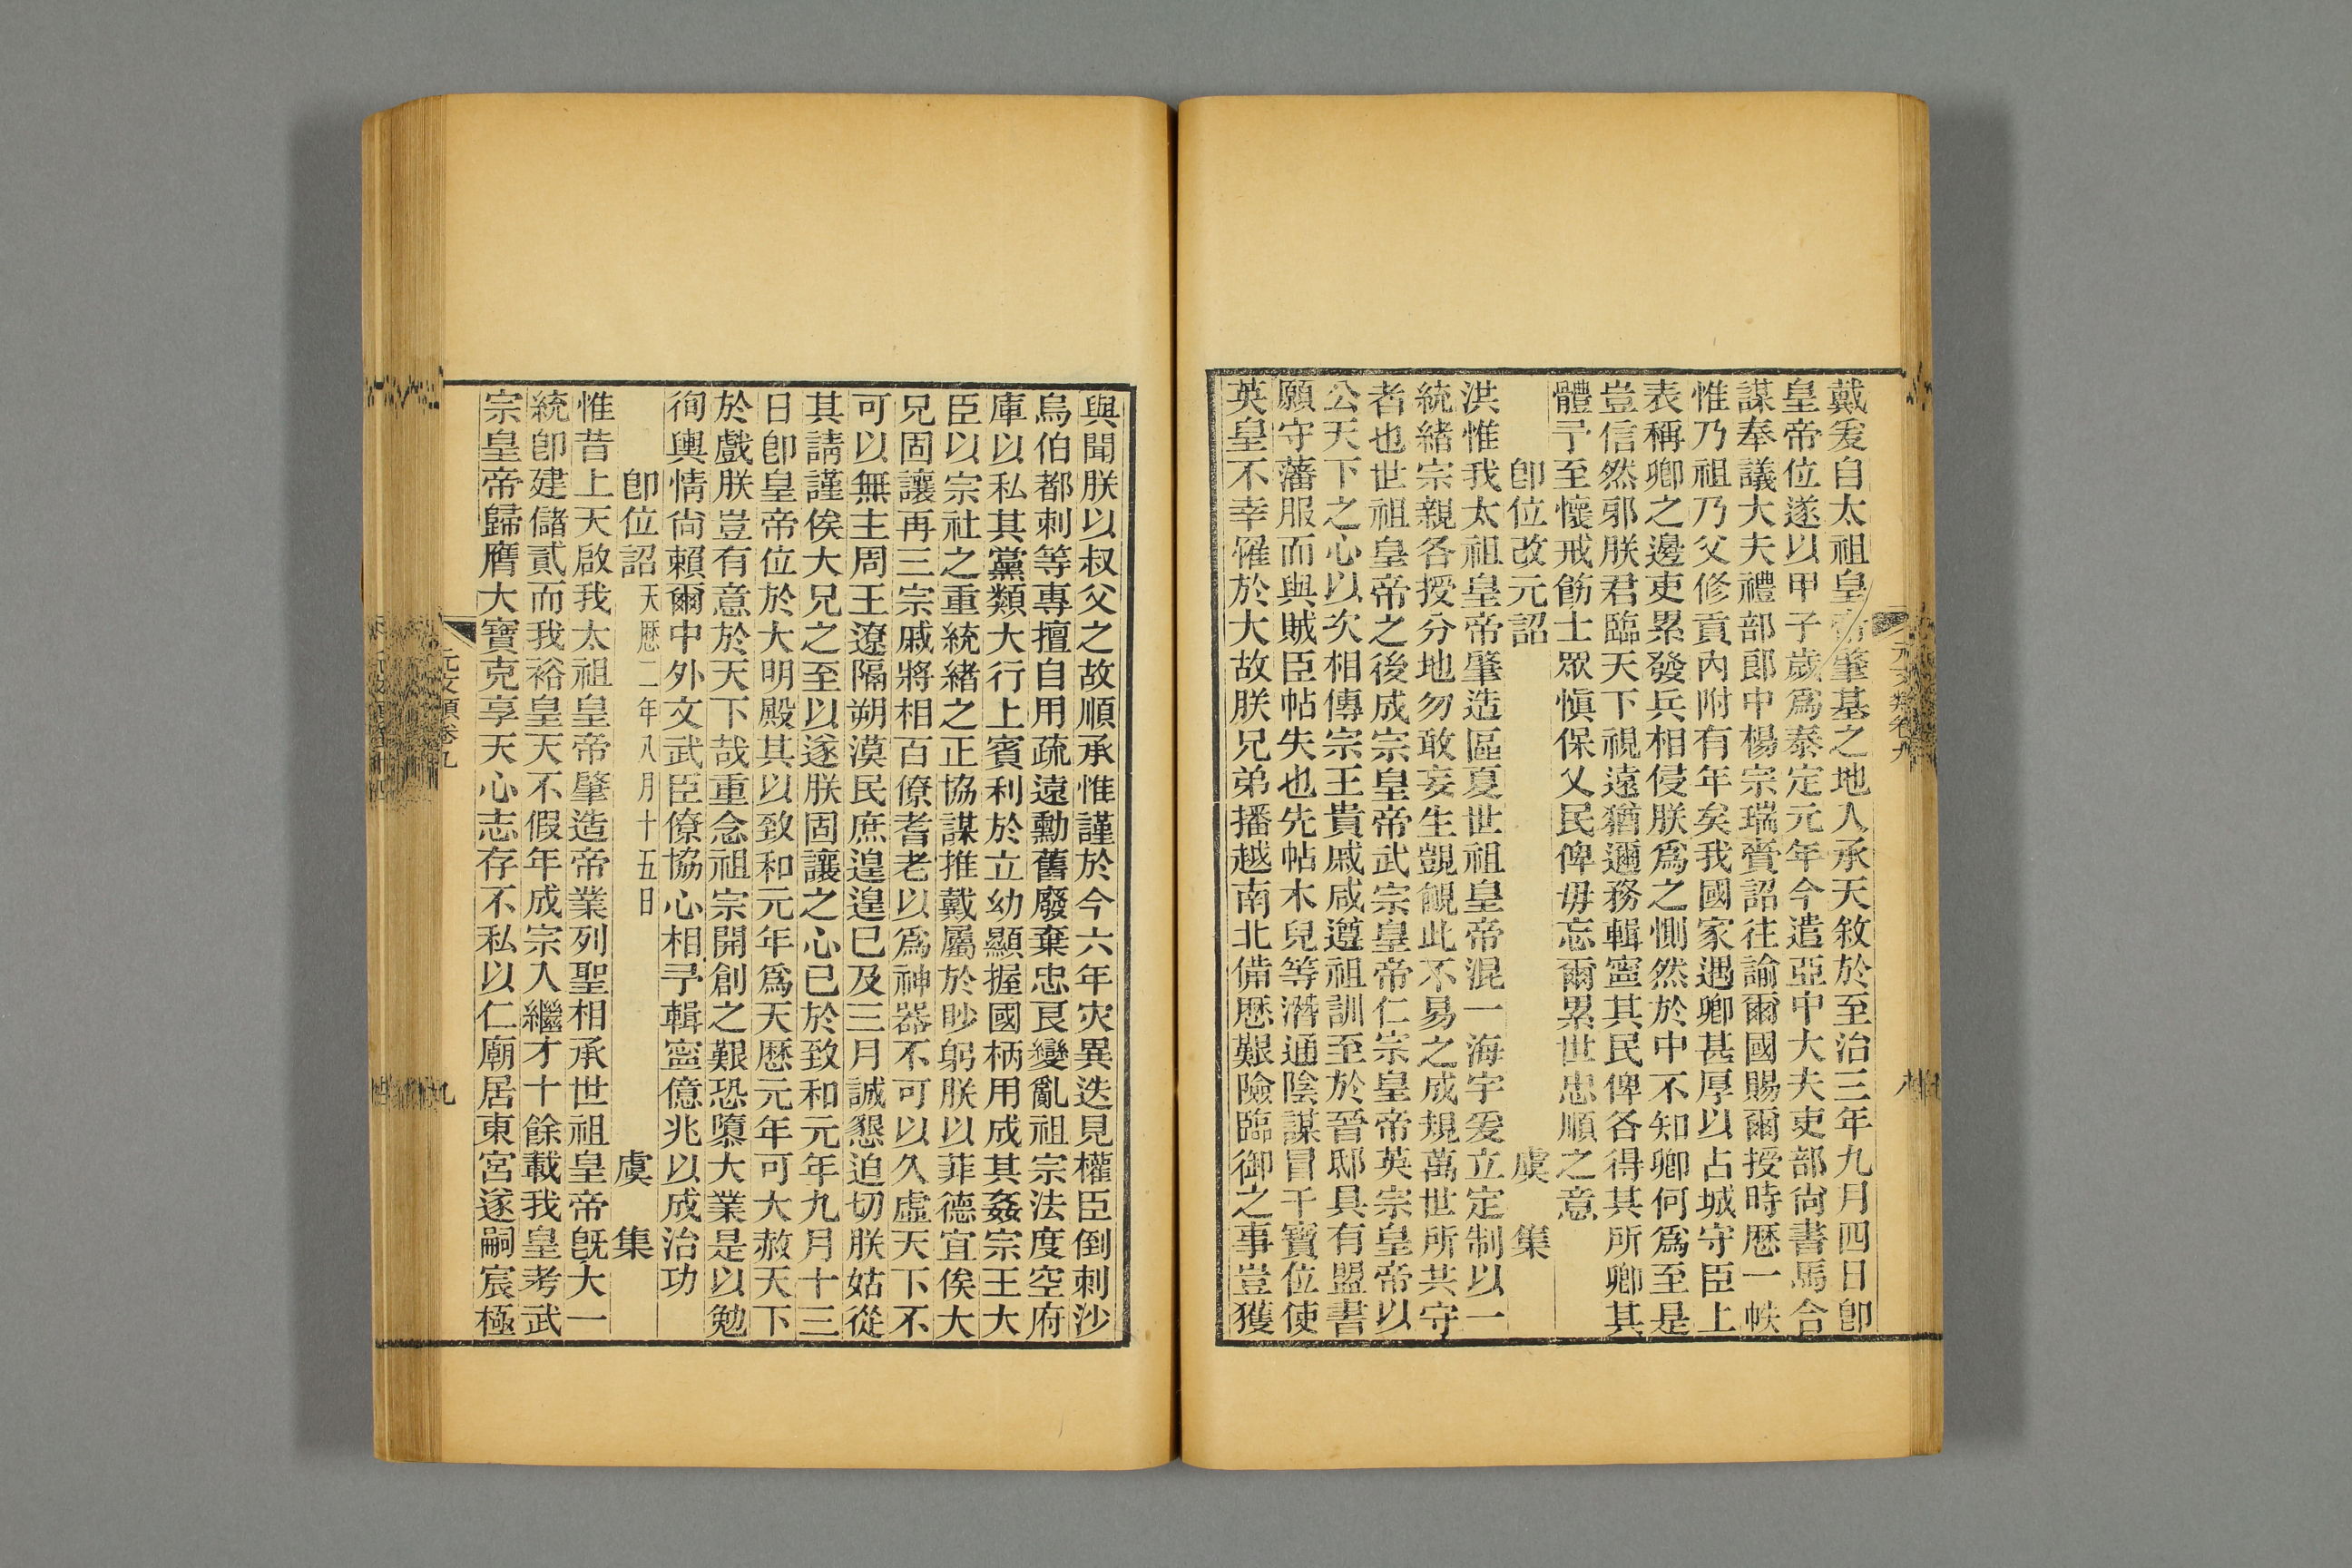 戴爰自太祖皇帝肇基之地入承天敘於至治三年九月四日卽
皇帝位遂以甲子歲爲泰定元年今遣亞中大夫吏部尙書馬合
謀奉議大夫禮部郞中楊宗瑞賫詔往諭爾國賜爾授時歷一帙
惟乃祖乃父修貢內附有年矣我國家遇卿甚厚以占城守臣上
表稱卿之邊吏累發兵相侵朕爲之惻然於中不知卿何爲至是
豈信然邪朕君臨天下視遠猶邇務輯寧其民俾各得其所卿其
體予至懷戒飭士眾愼保乂民俾毋忘爾累世忠順之意
卽位改元詔 虞集
洪惟我太祖皇帝肇造區夏世祖皇帝混一海宇爰立定制以一
統緒宗親各授分地勿敢妄生覬覦此不易之成規萬世所共守
者也世祖皇帝之後成宗皇帝武宗皇帝仁宗皇帝英宗皇帝以
公天下之心以次相傳宗王貴戚咸遵祖訓至於晉邸具有盟書
願守藩服而與賊臣帖失也先帖木兒等潛通陰謀冒干寶位使
英皇不幸罹於大故朕兄弟播越南北備歷艱險臨御之事豈獲
元文類卷九
與聞朕以叔父之故順承惟謹於今六年灾異迭見權臣倒剌沙
烏伯都剌等專擅自用疏遠勳舊廢棄忠良變亂祖宗法度空府
庫以私其黨類大行上賓利於立幼顯握國柄用成其姦宗王大
臣以宗社之重統緒之正協謀推戴屬於眇躬朕以菲德宜俟大
兄固讓再三宗戚將相百僚耆老以爲神器不可以久虛天下不
可以無主周王遼隔朔漠民庶遑遑已及三月誠懇迫切朕姑從
其請謹俟大兄之至以遂朕固讓之心已於致和元年九月十三
日卽皇帝位於大明殿其以致和元年爲天歷元年可大赦天下
於戲朕豈有意於天下哉重念祖宗開創之艱恐隳大業是以勉
徇輿情尙賴爾中外文武臣僚協心相予輯寧億兆以成治功
卽位詔天歷二年八月十五日 虞集
惟昔上天啟我太祖皇帝肇造帝業列聖相承世祖皇帝旣大一
統卽建儲貳而我裕皇天不假年成宗入繼才十餘載我皇考武
宗皇帝歸膺大寶克享天心志存不私以仁廟居東宮遂嗣宸極
元文類卷九
九